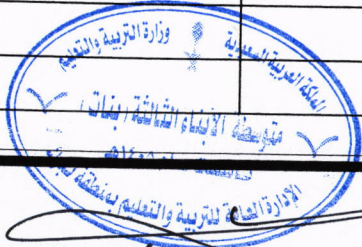 المملكة العربية السعودية
وزارة التربية والتعليم
متوسطة الأبناء الثالثة (بنات)
الإدارة العامة للتربية والتعليم بمنطقة